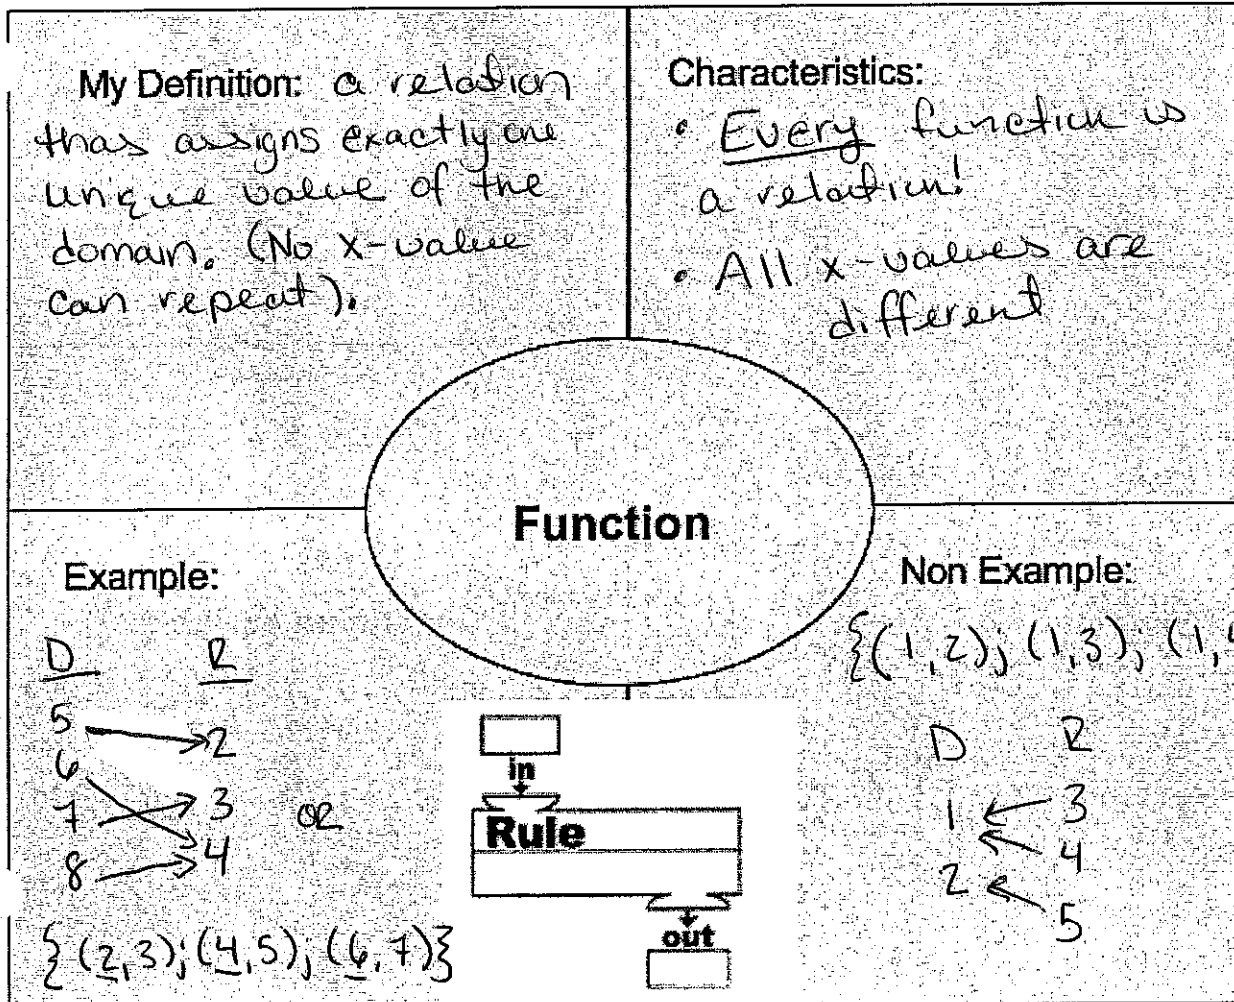 My Definition: a relation
thas assigns exactly one
unique value of the
domain. (No x-value
can repeat).
Characteristics:
• Every function is
a relation!
• All x-values are
different
Function
Example:
D R
5 2
6
7 3 or
8 4
{(2,3);(4,5);(6,7)}
in
Rule
out
Non Example:
{(1,2); (1,3); (1,
D R
1 3
4
2
5